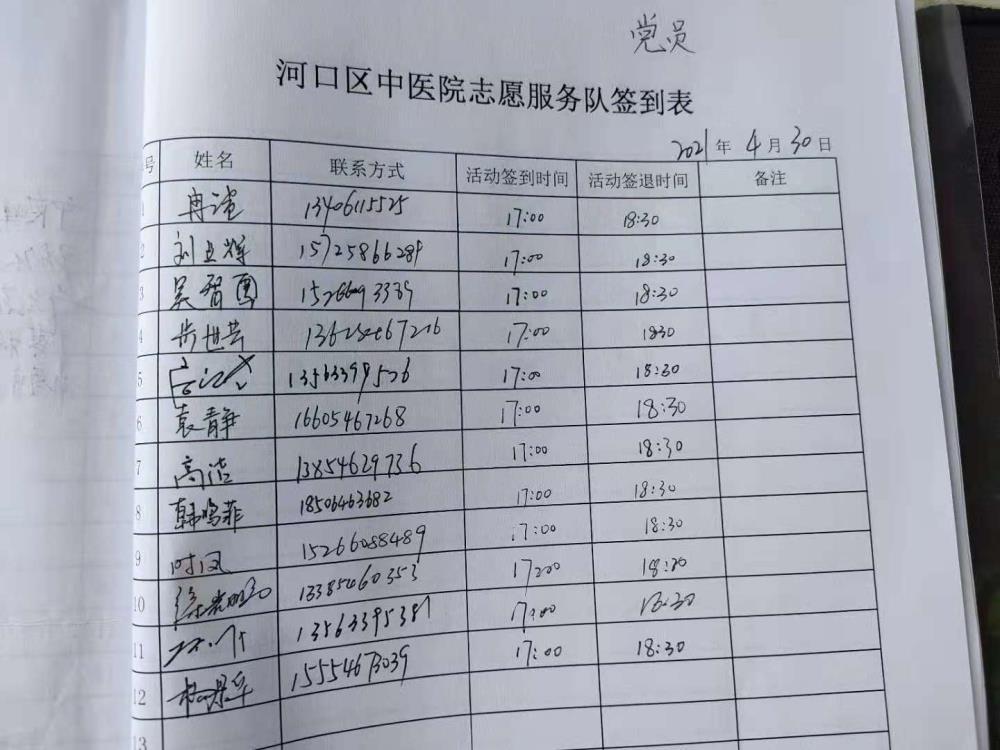 党员
河口区中医院志愿服务队签到表
2021年 4月30日
号 姓名 联系方式 活动签到时间 活动签退时间 备注
1 冉 13406115525 17:00 18:30
2 刘立辉 15725866289 17:00 18:30
3 吴智勇 17:00 18:30
4 步世芸 17:00 1830
5 17:00 18:30
6 袁静 16605467268 17:00 18:30
7 高洁 13854629736 17:00 18:30
8 韩鸣菲 18506463682 17:00 18:30
9 时凤 15266088489 17:00 18:30
10 13385460353 17:00 18:30
11 13563395381 17:00 18:30
12 15554673039 17:00 18:30
13